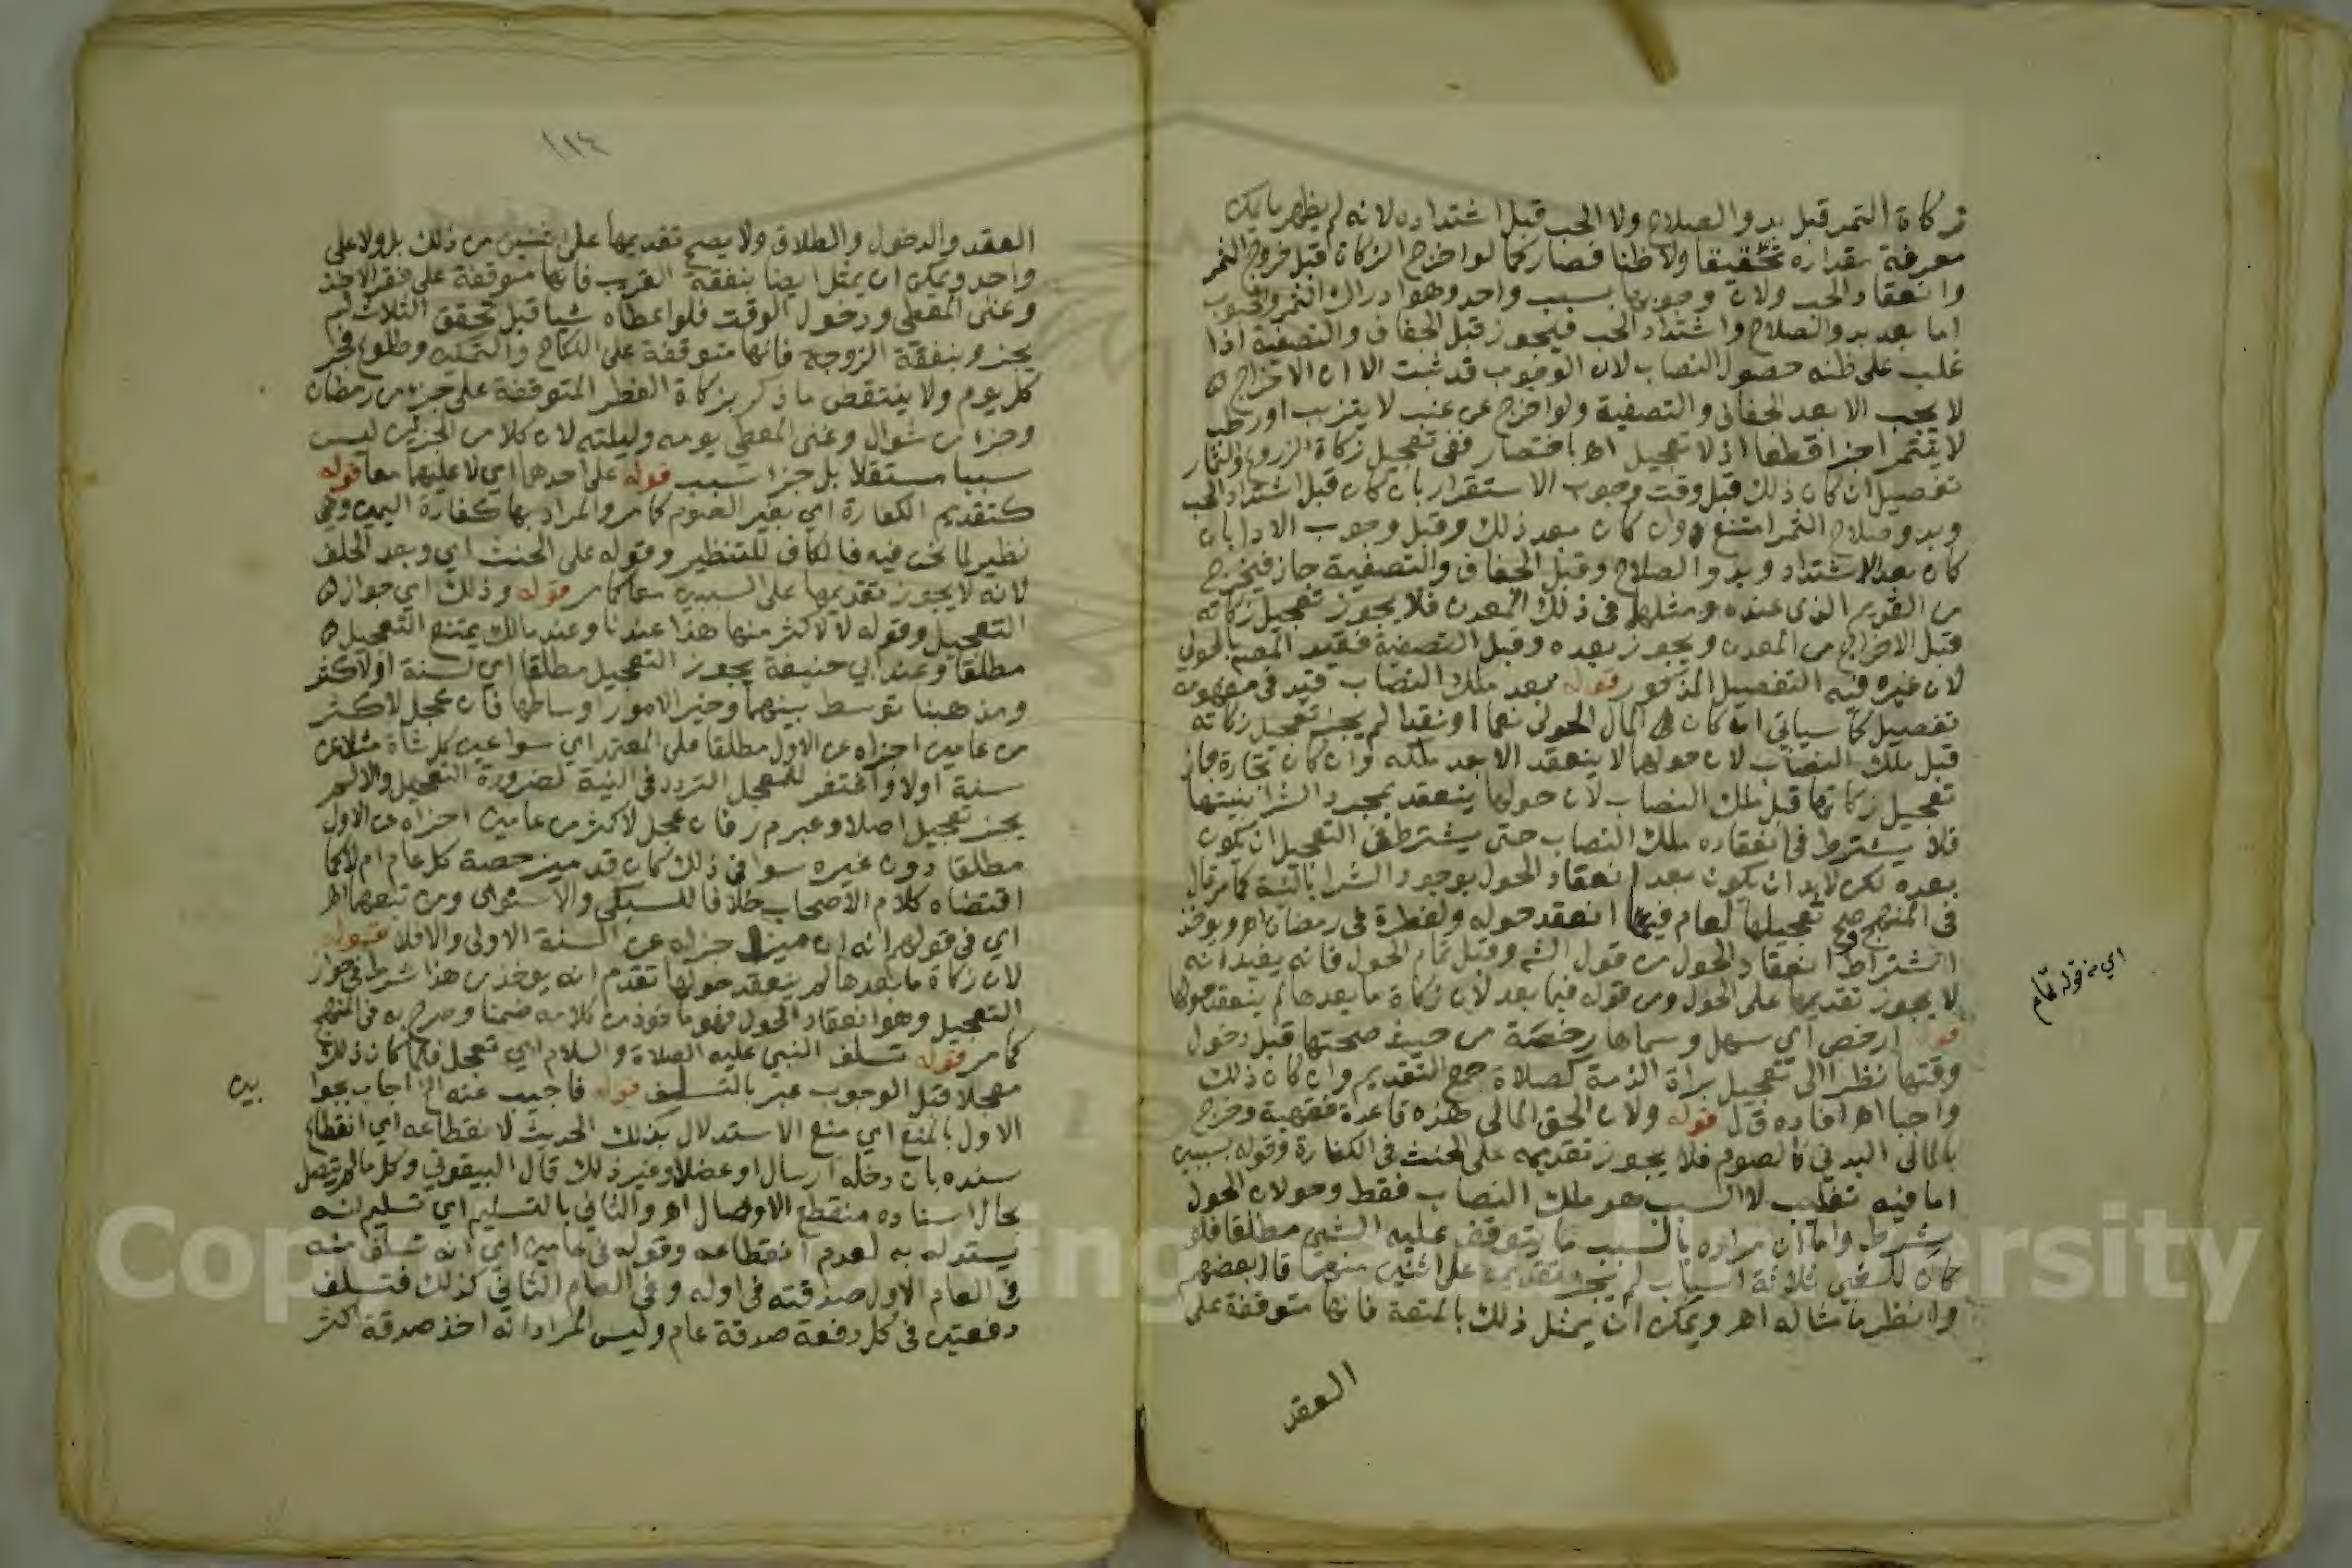 زكاة التمر قبل بدو الصلاح ولا الحب قبل اشتداده لانه لم يظهر ما يمكن
معرفة مقداره تحقيقا ولا ظنا فصار كما لو اخرج الزكاة قبل خروج الثمر
وانعقاد الحب ولان وجوبها بسبب واحد وهو ادراك الثمر والحبوب
اما بعد بدو الصلاح واشتداد الحب فيجوز قبل الجفاف والتصفية اذا
غلب على ظنه حصول النصاب لان الوجوب قد ثبت الا ان الاخراج
لا يجب الا بعد الجفاف والتصفية ولو اخرج عن عنب لا يتزبب او رطب
لا يتتمر اجزا قطعا اذ لا تعجيل اهـ باختصار ففى تعجيل زكاة الزروع والثمار
تفصيل ان كان ذلك قبل وقت وجوب الاستقرار بان كان قبل اشتداد الحب
وبدو صلاح الثمر امتنع وان كان بعد ذلك وقبل وجوب الادا بان
كان بعد الاشتداد وبدو الصلاح وقبل الجفاف والتصفية جاز فيخرج
من القديم الذى عنده ومثلهما فى ذلك المعدن فلا يجوز تعجيل زكاته
قبل الاخراج من المعدن ويجوز بعده وقبل التصفية فقيد المصنف بالحولي
لان غيره فيه التفصيل المذكور قوله بعد ملك النصاب قيد فى مفهومه
تفصيل كما سياتي ان كان المال الحولى نعما او نقدا لم يجز تعجيل زكاته
قبل ملك النصاب لان حولها لا ينعقد الا بعد ملكه وان كان تجارة جاز
تعجيل زكاتها قبل ملك النصاب لان حولها ينعقد بمجرد الشرا بنيتها
فلا يشترط فى انعقاده ملك النصاب حتى يشترط فى التعجيل ان يكون
بعده لكن لابد ان يكون بعد انعقاد الحول بوجود الشرا بالنية كما مر قال
فى المنهج صح تعجيلها لعام فيما انعقد حوله ولفطرة فى رمضان اهـ ويوخذ
اشتراط انعقاد الحول من قول الشم وقبل تمام الحول فانه يفيد انه
لا يجوز تقديمها على الحول ومن قوله فيما بعد لان زكاة ما بعدها لم ينعقد حولها
قوله ارخص اي سهل وسماها رخصة من حيث صحتها قبل دخول
وقتها نظرا الى تعجيل براة الذمة كصلاة جمع التقديم وان كان ذلك
واجبا اهـ افاده ق ل قوله ولان الحق المالى هذه قاعدة فقهية وخرج
بالمالى البدنى كالصوم فلا يجوز تقديمه على الحنث فى الكفارة وقوله بسببين
اما فيه تغليب لان السبب هو ملك النصاب فقط وحولان الحول
شرط واما ان مراده بالسبب ما يتوقف عليه الشى مطلقا فلو
كان للشي ثلاثة اسباب لم يجز تقديمه على اثنين منها قال بعضهم
وانظر ما مثاله اهـ ويمكن ان يمثل ذلك بالمتعة فانها متوقفة على
العقد
اي من قوله تمام
١٢٤
العقد والدخول والطلاق ولا يصح تقديمها على اثنين من ذلك بل ولا على
واحد ويمكن ان يمثل ايضا بنفقة القريب فانها متوقفة على فقر الاخذ
وغنى المعطى ودخول الوقت فلو اعطاه شيا قبل تحقق الثلاث لم
يجز وبنفقة الزوجة فانها متوقفة على النكاح والتمكين وطلوع فجر
كل يوم ولا ينتقض ما ذكر بزكاة الفطر المتوقفة على جزء من رمضان
وجزا من شوال وغنى المعطى يومه وليلته لان كلا من الجزئين ليس
سببا مستقلا بل جزا سبب قوله على احدهما اي لا عليهما معا قوله
كتقديم الكفارة اي بغير الصوم كما مر والمراد بها كفارة اليمين وهى
نظير لما نحن فيه فالكاف للتنظير وقوله على الحنث اي وبعد الحلف
لانه لا يجوز تقديمها على السببين معا كما مر قوله وذلك اي جواز
التعجيل وقوله لا لاكثر منها هذا عندنا وعند مالك يمتنع التعجيل
مطلقا وعند ابي حنيفة يجوز التعجيل مطلقا اي لسنة او لاكثر
ومذهبنا توسط بينهما وخير الامور اوساطها فان عجل لاكثر
من عامين اجزاه عن الاول مطلقا على المعتمد اي سوا عين كل شاة مثلا عن
سنة اولا واغتفر للمعجل التردد فى النية لضرورة التعجيل والا لم
يجز تعجيل اصلا وعبر م ر فان عجل لاكثر من عامين اجزاه عن الاول
مطلقا دون غيره سوا فى ذلك كان قد ميز حصة كل عام ام لا كما
اقتضاه كلام الاصحاب خلافا للسبكى والاسنوى ومن تبعهما اهـ
اي فى قولهم انه ان ميز اجزاه عن السنة الاولى والا فلا قوله
لان زكاة ما بعدها لم ينعقد حولها تقدم انه يوخذ من هذا شرط فى جواز
التعجيل وهو انعقاد الحول فهو ماخوذ من كلامه ضمنا وصرح به فى المنهج
كما مر قوله تسلف النبى عليه الصلاة والسلام اي تعجل فلما كان ذلك
معجلا قبل الوجوب عبر بالتسلف قوله فاجيب عنه الخ اجاب بجوا
بين
الاول بالمنع اي منع الاستدلال بذلك الحديث لانقطاعه اي انقطاع
سنده بان دخله ارسال او عضل او غير ذلك قال البيقوني وكل ما لم يتصل
بحال اسناده منقطع الاوصال اهـ والثانى بالتسليم اي تسليم انه
يستدل به لعدم انقطاعه وقوله فى عامين اي انه تسلف منه
فى العام الاول صدقته فى اوله وفى العام الثانى كذلك فتسلف
دفعتين فى كل دفعة صدقة عام وليس المراد انه اخذ صدقة اكثر